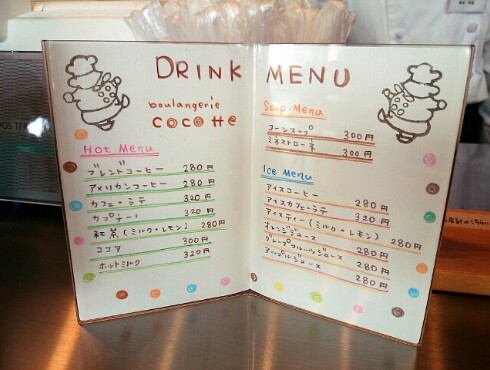 DRINK MENU
boulangerie
cocotte
Hot Menu
ブレンドコーヒー 280円
アメリカンコーヒー 280円
カフェ・ラテ 320円
カプチーノ 320円
紅茶(ミルク・レモン) 280円
ココア 300円
ホットミルク 320円
Soup Menu
コーンスープ 300円
ミネストローネ 300円
Ice Menu
アイスコーヒー 280円
アイスカフェ・ラテ 320円
アイスティー(ミルク・レモン) 280円
オレンジジュース 280円
グレープフルーツジュース 280円
アップルジュース 280円